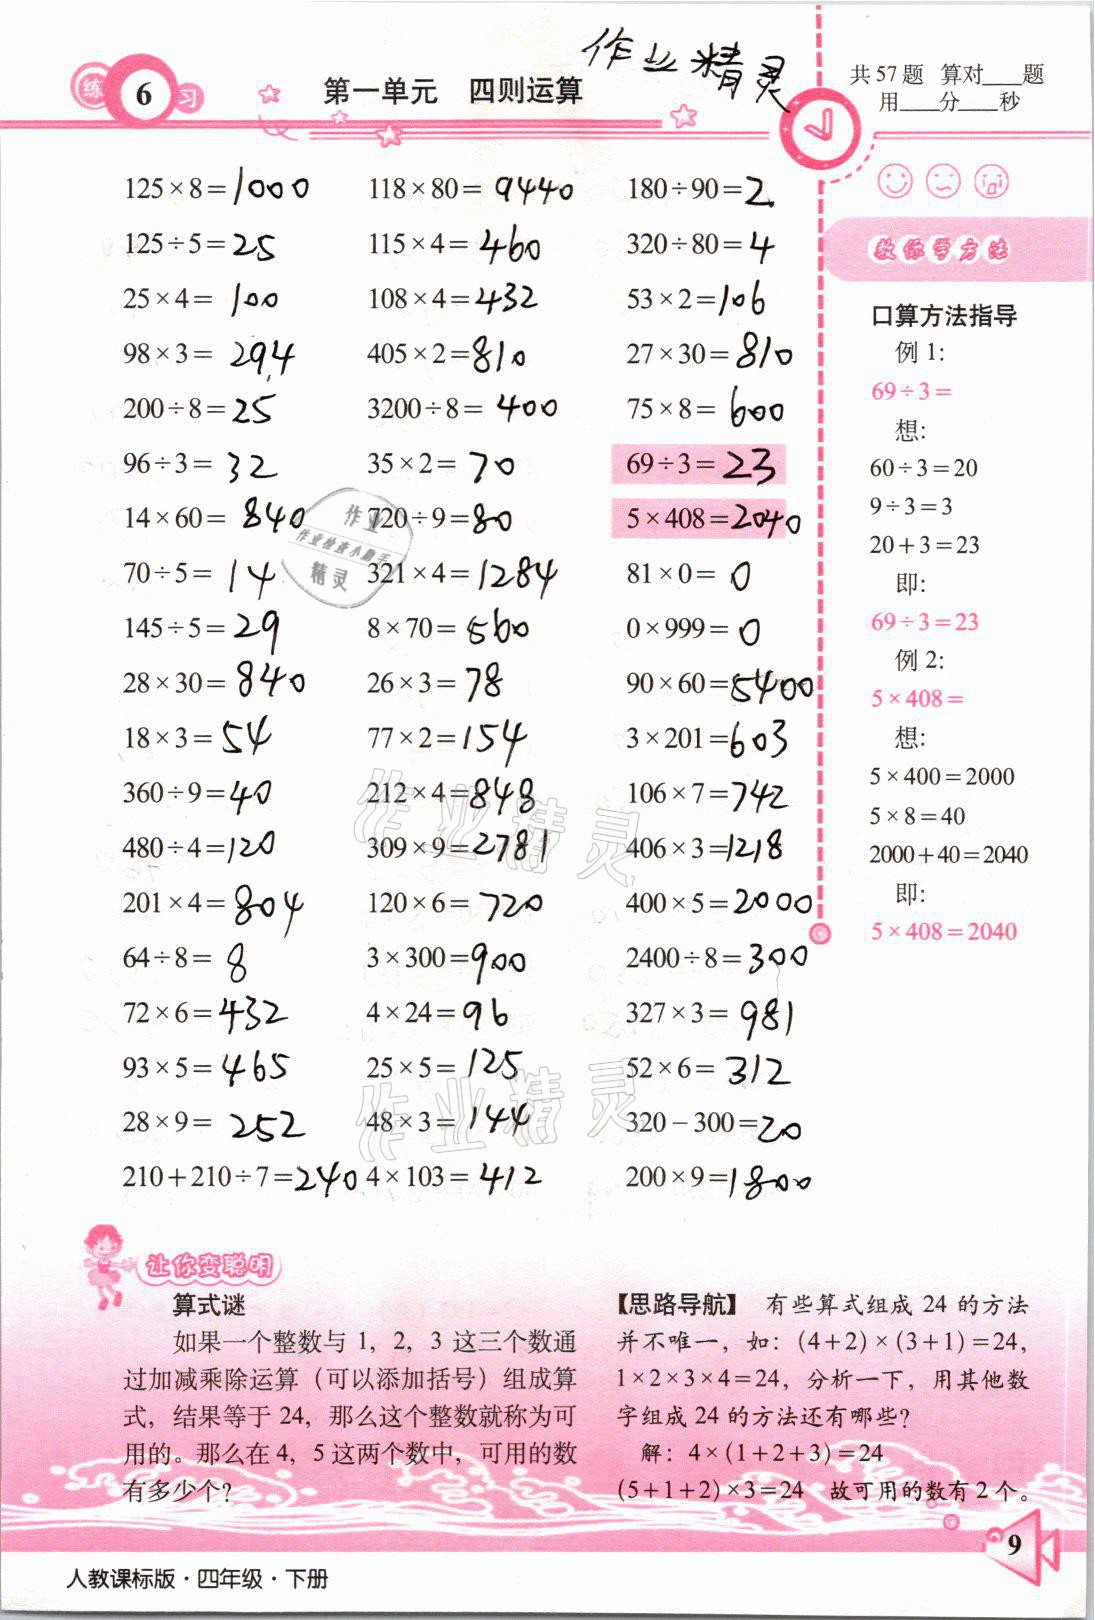 练 6 习
第一单元 四则运算
作业精灵
共57题 算对____题
用____分____秒
125×8=1000 118×80=9440 180÷90=2
125÷5=25 115×4=460 320÷80=4
25×4=100 108×4=432 53×2=106
98×3=294 405×2=810 27×30=810
200÷8=25 3200÷8=400 75×8=600
96÷3=32 35×2=70 69÷3=23
14×60=840 720÷9=80 5×408=2040
70÷5=14 321×4=1284 81×0=0
145÷5=29 8×70=560 0×999=0
28×30=840 26×3=78 90×60=5400
18×3=54 77×2=154 3×201=603
360÷9=40 212×4=848 106×7=742
480÷4=120 309×9=2781 406×3=1218
201×4=804 120×6=720 400×5=2000
64÷8=8 3×300=900 2400÷8=300
72×6=432 4×24=96 327×3=981
93×5=465 25×5=125 52×6=312
28×9=252 48×3=144 320-300=20
210+210÷7=240 4×103=412 200×9=1800
作业
作业检查小助手
精灵
作业精灵
作业精灵
教你学方法
口算方法指导
例1:
69÷3=
想:
60÷3=20
9÷3=3
20+3=23
即:
69÷3=23
例2:
5×408=
想:
5×400=2000
5×8=40
2000+40=2040
即:
5×408=2040
让你变聪明
算式谜
如果一个整数与1，2，3这三个数通
过加减乘除运算（可以添加括号）组成算
式，结果等于24，那么这个整数就称为可
用的。那么在4，5这两个数中，可用的数
有多少个？
【思路导航】 有些算式组成24的方法
并不唯一，如：(4+2)×(3+1)=24，
1×2×3×4=24，分析一下，用其他数
字组成24的方法还有哪些？
解：4×(1+2+3)=24
(5+1+2)×3=24 故可用的数有2个。
9
人教课标版·四年级·下册